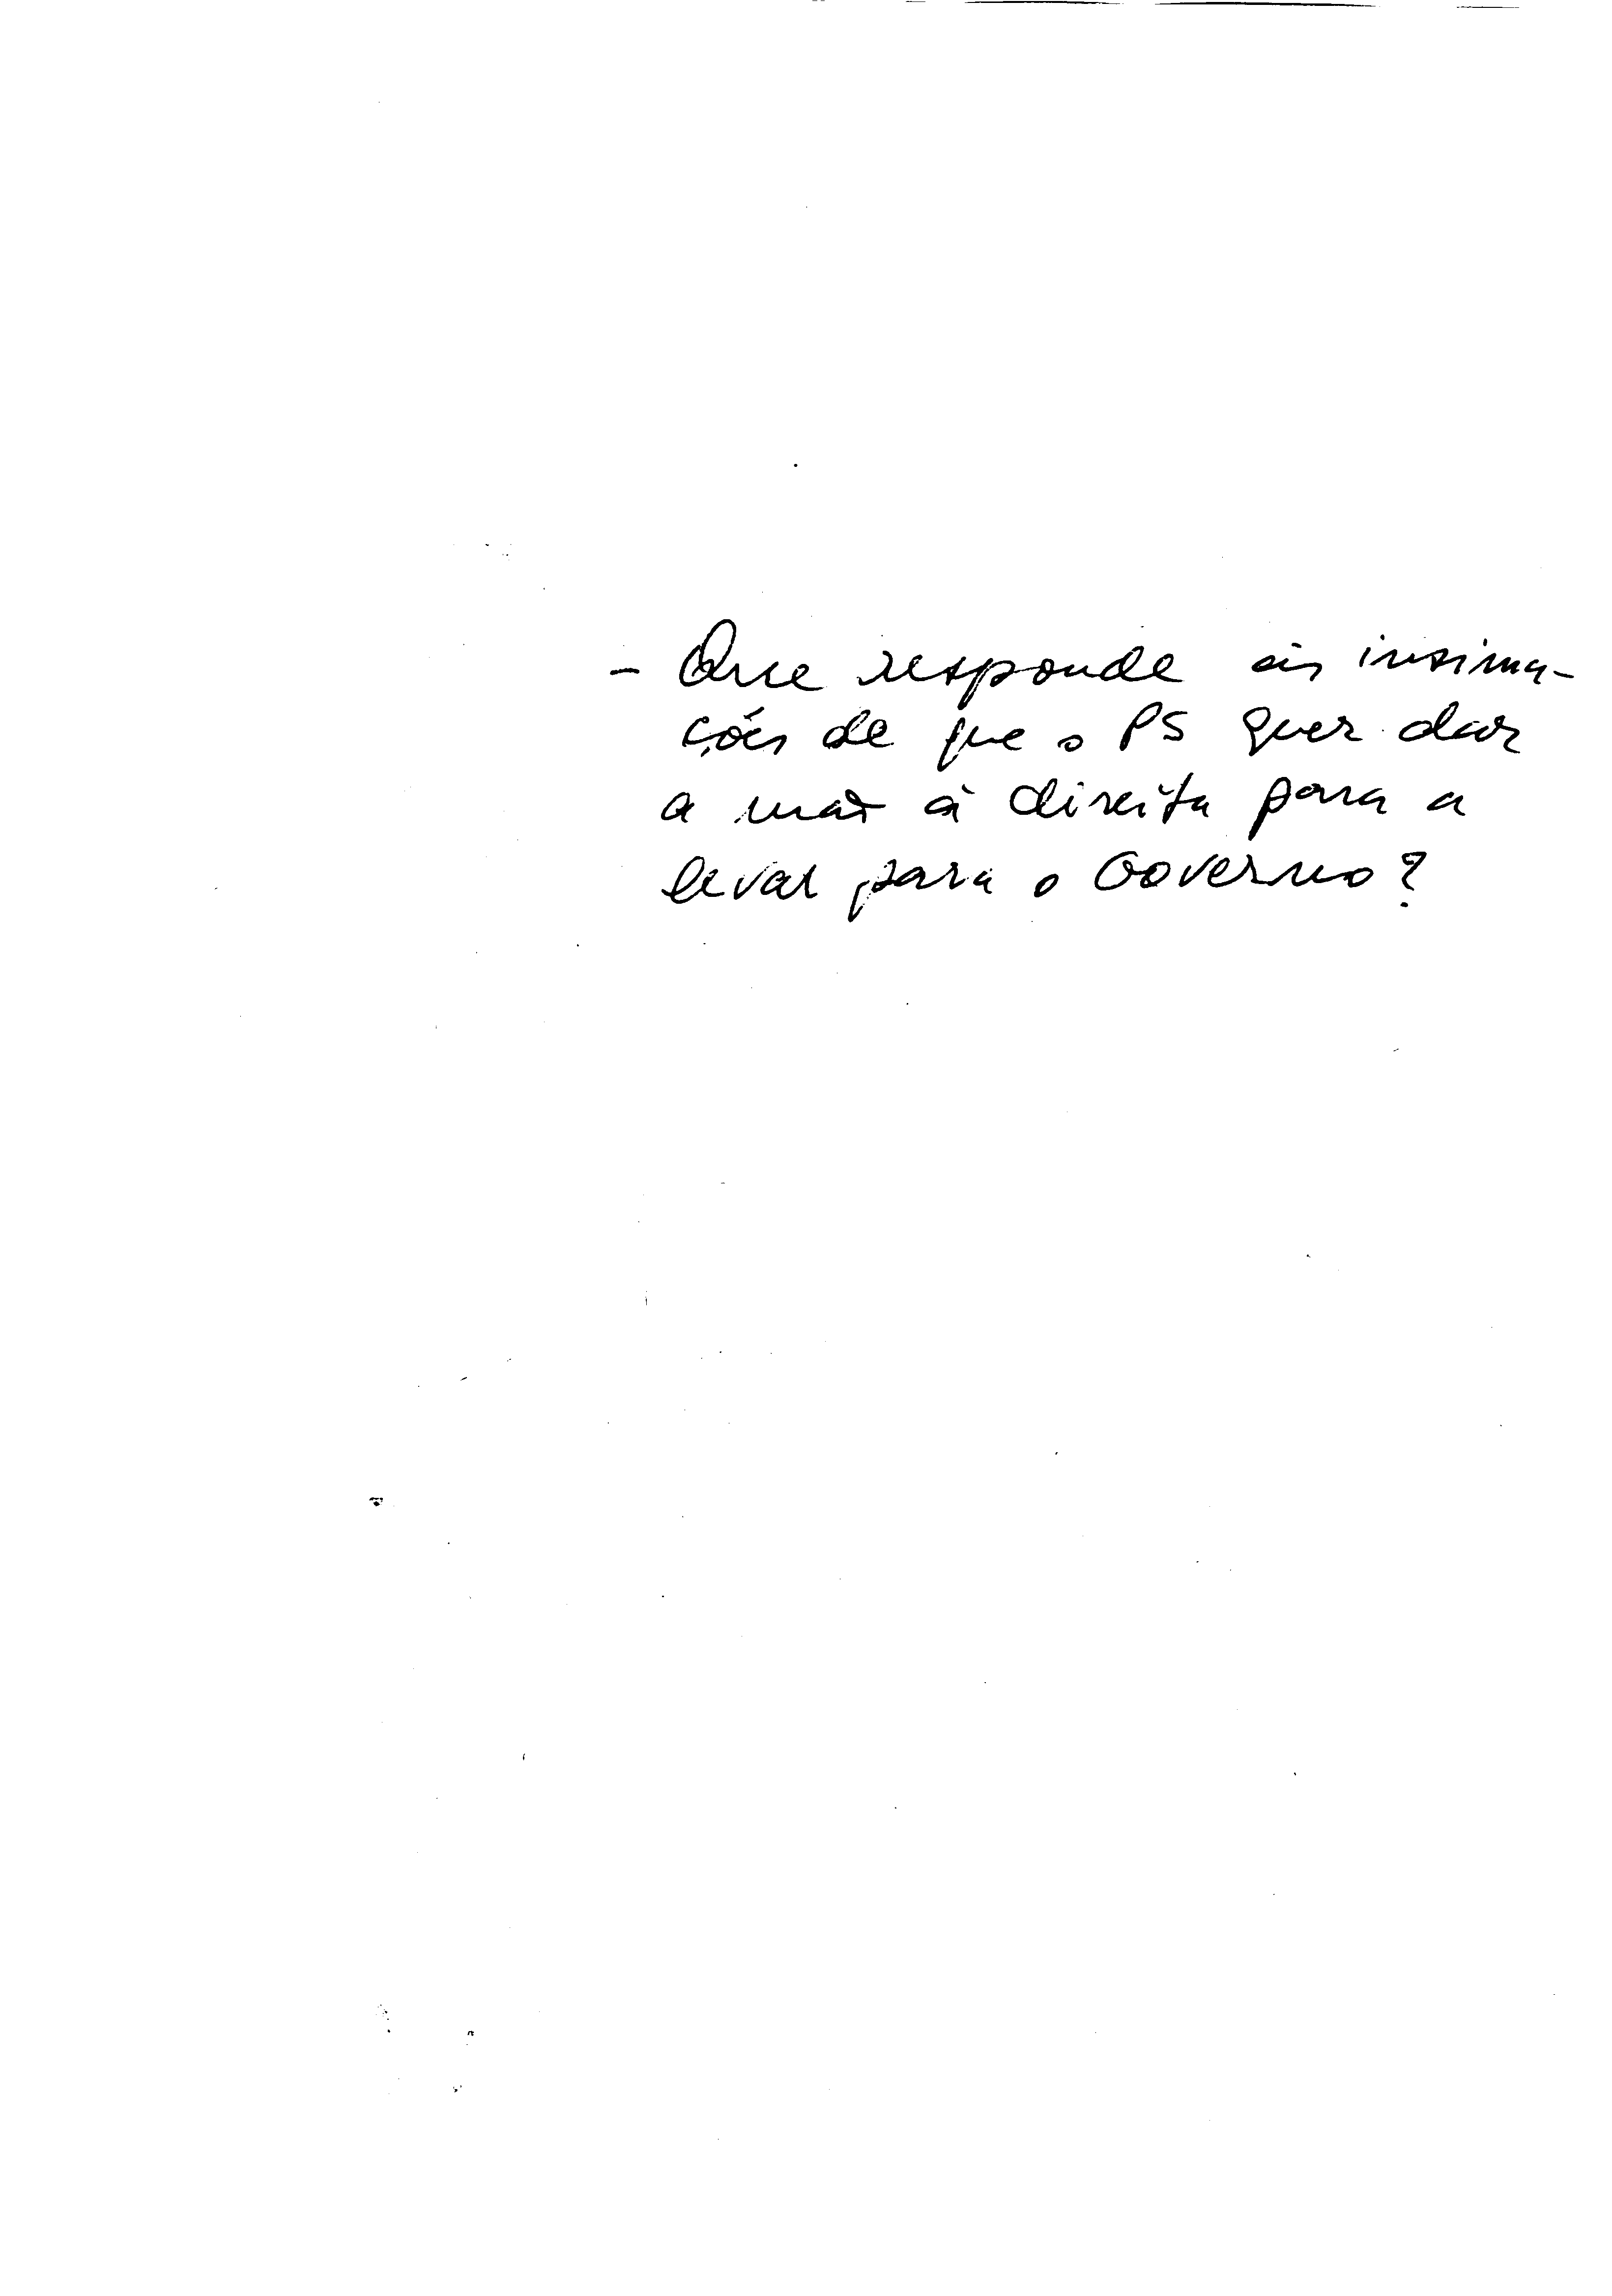 - Que responde às insinua-
ções de que o PS quer dar
a mão à direita para a
levar para o Governo?